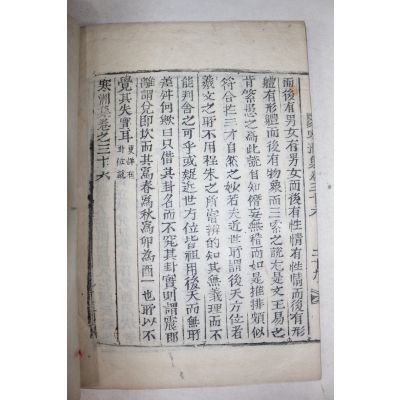 寒洲集卷三十六
而後有男女有男女而後有性情有性情而後有形
軆有形軆而後有物象而三索之說尤是文王易之
肯綮愚之爲此說自知僭妄無稽而如是推排類似
符合於三才自然之妙若夫近世所謂後天方位者
羲文之所不用程朱之所嘗辨的知其無義理而不
能判舍之可乎或疑近世方位皆祖用後天而無所
差舛何歟曰只借其卦名而不究其卦實則謂震郡
離謂兌卽坎而其爲春爲秋爲卯爲酉一也所以不
覺其失實耳更詳在卦位說
寒洲集卷之三十六